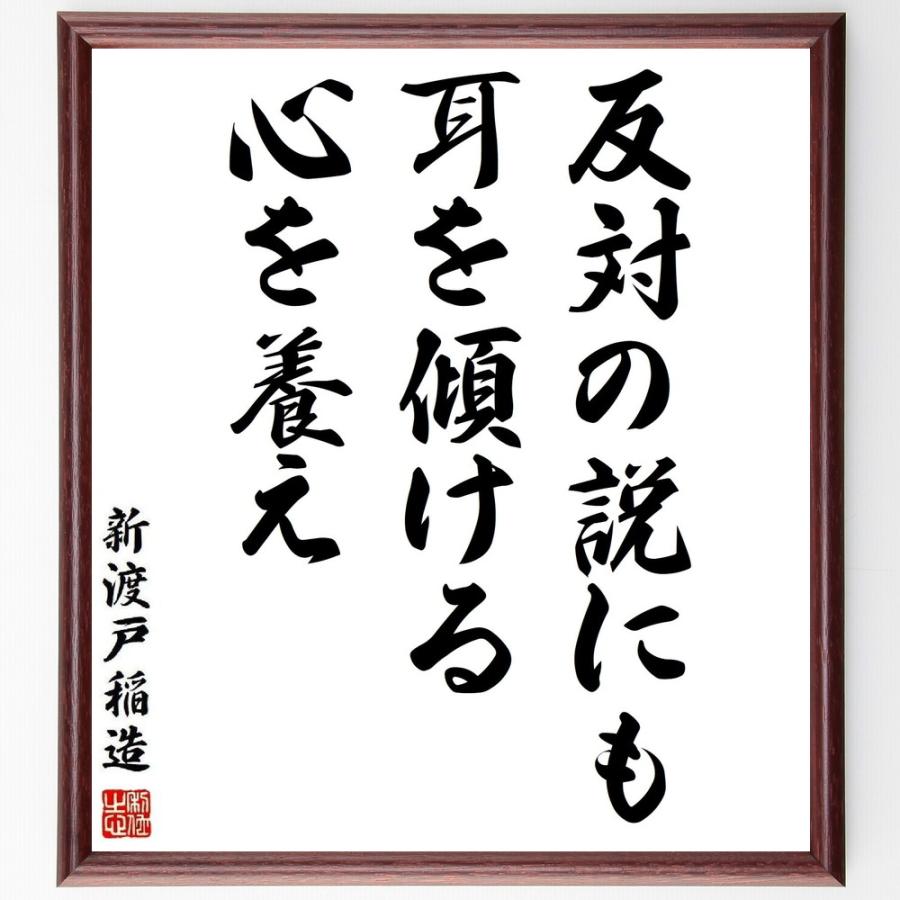 反対の説にも
耳を傾ける
心を養え
新渡戸稲造